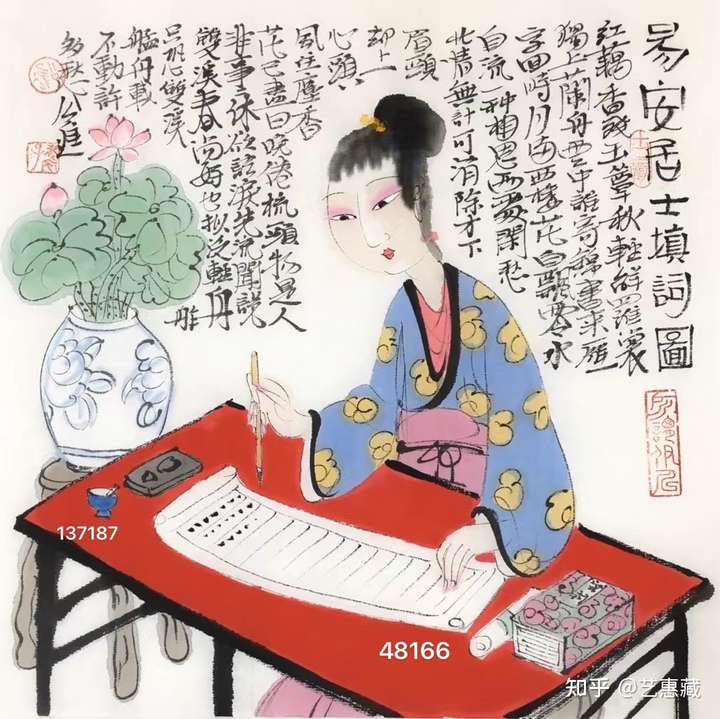 易安居士填詞圖
红藕香残玉簟秋輕解羅裳
獨上蘭舟雲中誰寄錦書来雁
字回時月满西樓花自飄零水
自流一种相思兩處閑愁
此情無計可消除才下
眉頭
却上
心頭
風住塵香
花已盡日晚倦梳頭物是人
非事事休欲語淚先流聞説
雙溪春尚好也拟泛輕舟
舴
只恐雙溪
艋舟載
不動許
多愁 公進
137187
48166
知乎 @艺惠藏